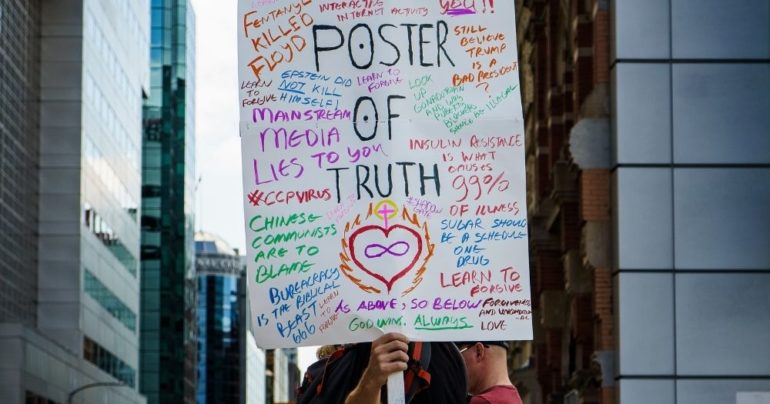 FENTANYL
KILLED
FLOYD
INTERACTIVE
INTERNET ACTIVITY
YOU!!
POSTER
OF
TRUTH
STILL
BELIEVE
TRUMP
IS A
BAD PRESIDENT
?
LEARN
TO
FORGIVE
EPSTEIN DID
NOT KILL
HIMSELF!
LEARN TO
FORGIVE
LOOK
UP
MAINSTREAM
MEDIA
LIES TO YOU
INSULIN RESISTANCE
IS WHAT
CAUSES
99%
OF ILLNESS
#CCPVIRUS
CHINESE
COMMUNISTS
ARE TO
BLAME
SUGAR SHOULD
BE A SCHEDULE
ONE
DRUG
BUREAUCRACY
IS THE BIBLICAL
BEAST
666
LEARN
TO
LEARN TO
FORGIVE
AS ABOVE, SO BELOW
GOD WINS. ALWAYS
FORGIVENESS
AND
LOVE